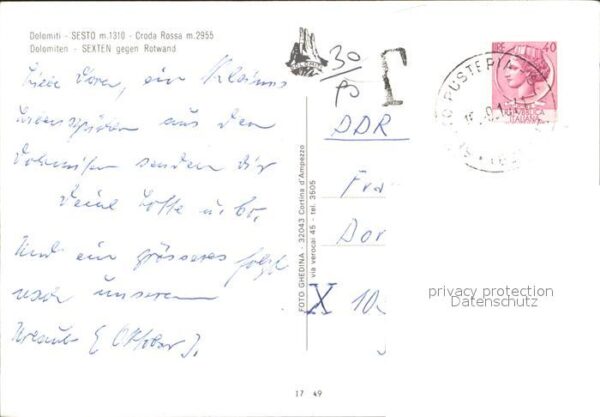 Dolomiti - SESTO m.1310 - Croda Rossa m.2955
Dolomiten - SEXTEN gegen Rotwand
Liebe Dora, ein kleines
Lebenszeichen aus den
Dolomiten senden Dir
Deine Lotte u.
Und ein grösseres folgt
nach unserem
Urlaub (Oktober).
FOTO GHEDINA - 32043 Cortina d'Ampezzo
via verocai 45 - tel. 3505
30
T
DDR
Fra
Dor
X 10
LIRE 40
REPUBBLICA
ITALIANA
privacy protection
Datenschutz
17 49